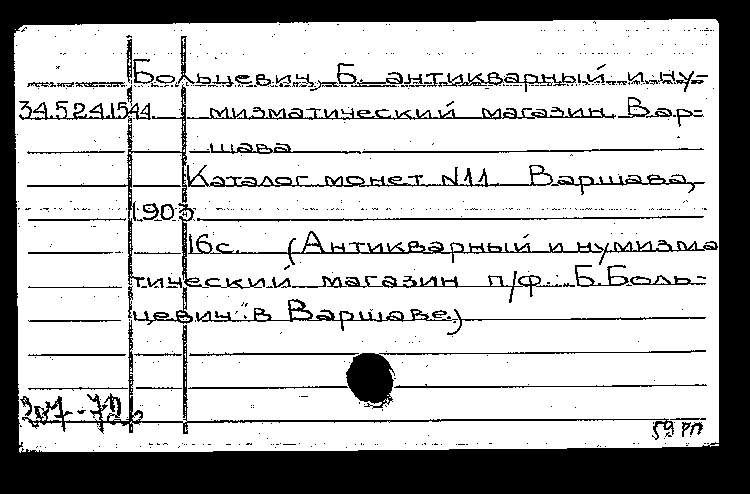 Больцевич, Б. антикварный и ну-
34.5.24.1544. мизматический магазин. Вар-
шава
Каталог монет N11 Варшава,
1903.
16с. (Антикварный и нумизма
тический магазин п/ф. "Б. Боль-
цевич" в Варшаве)
59 РП